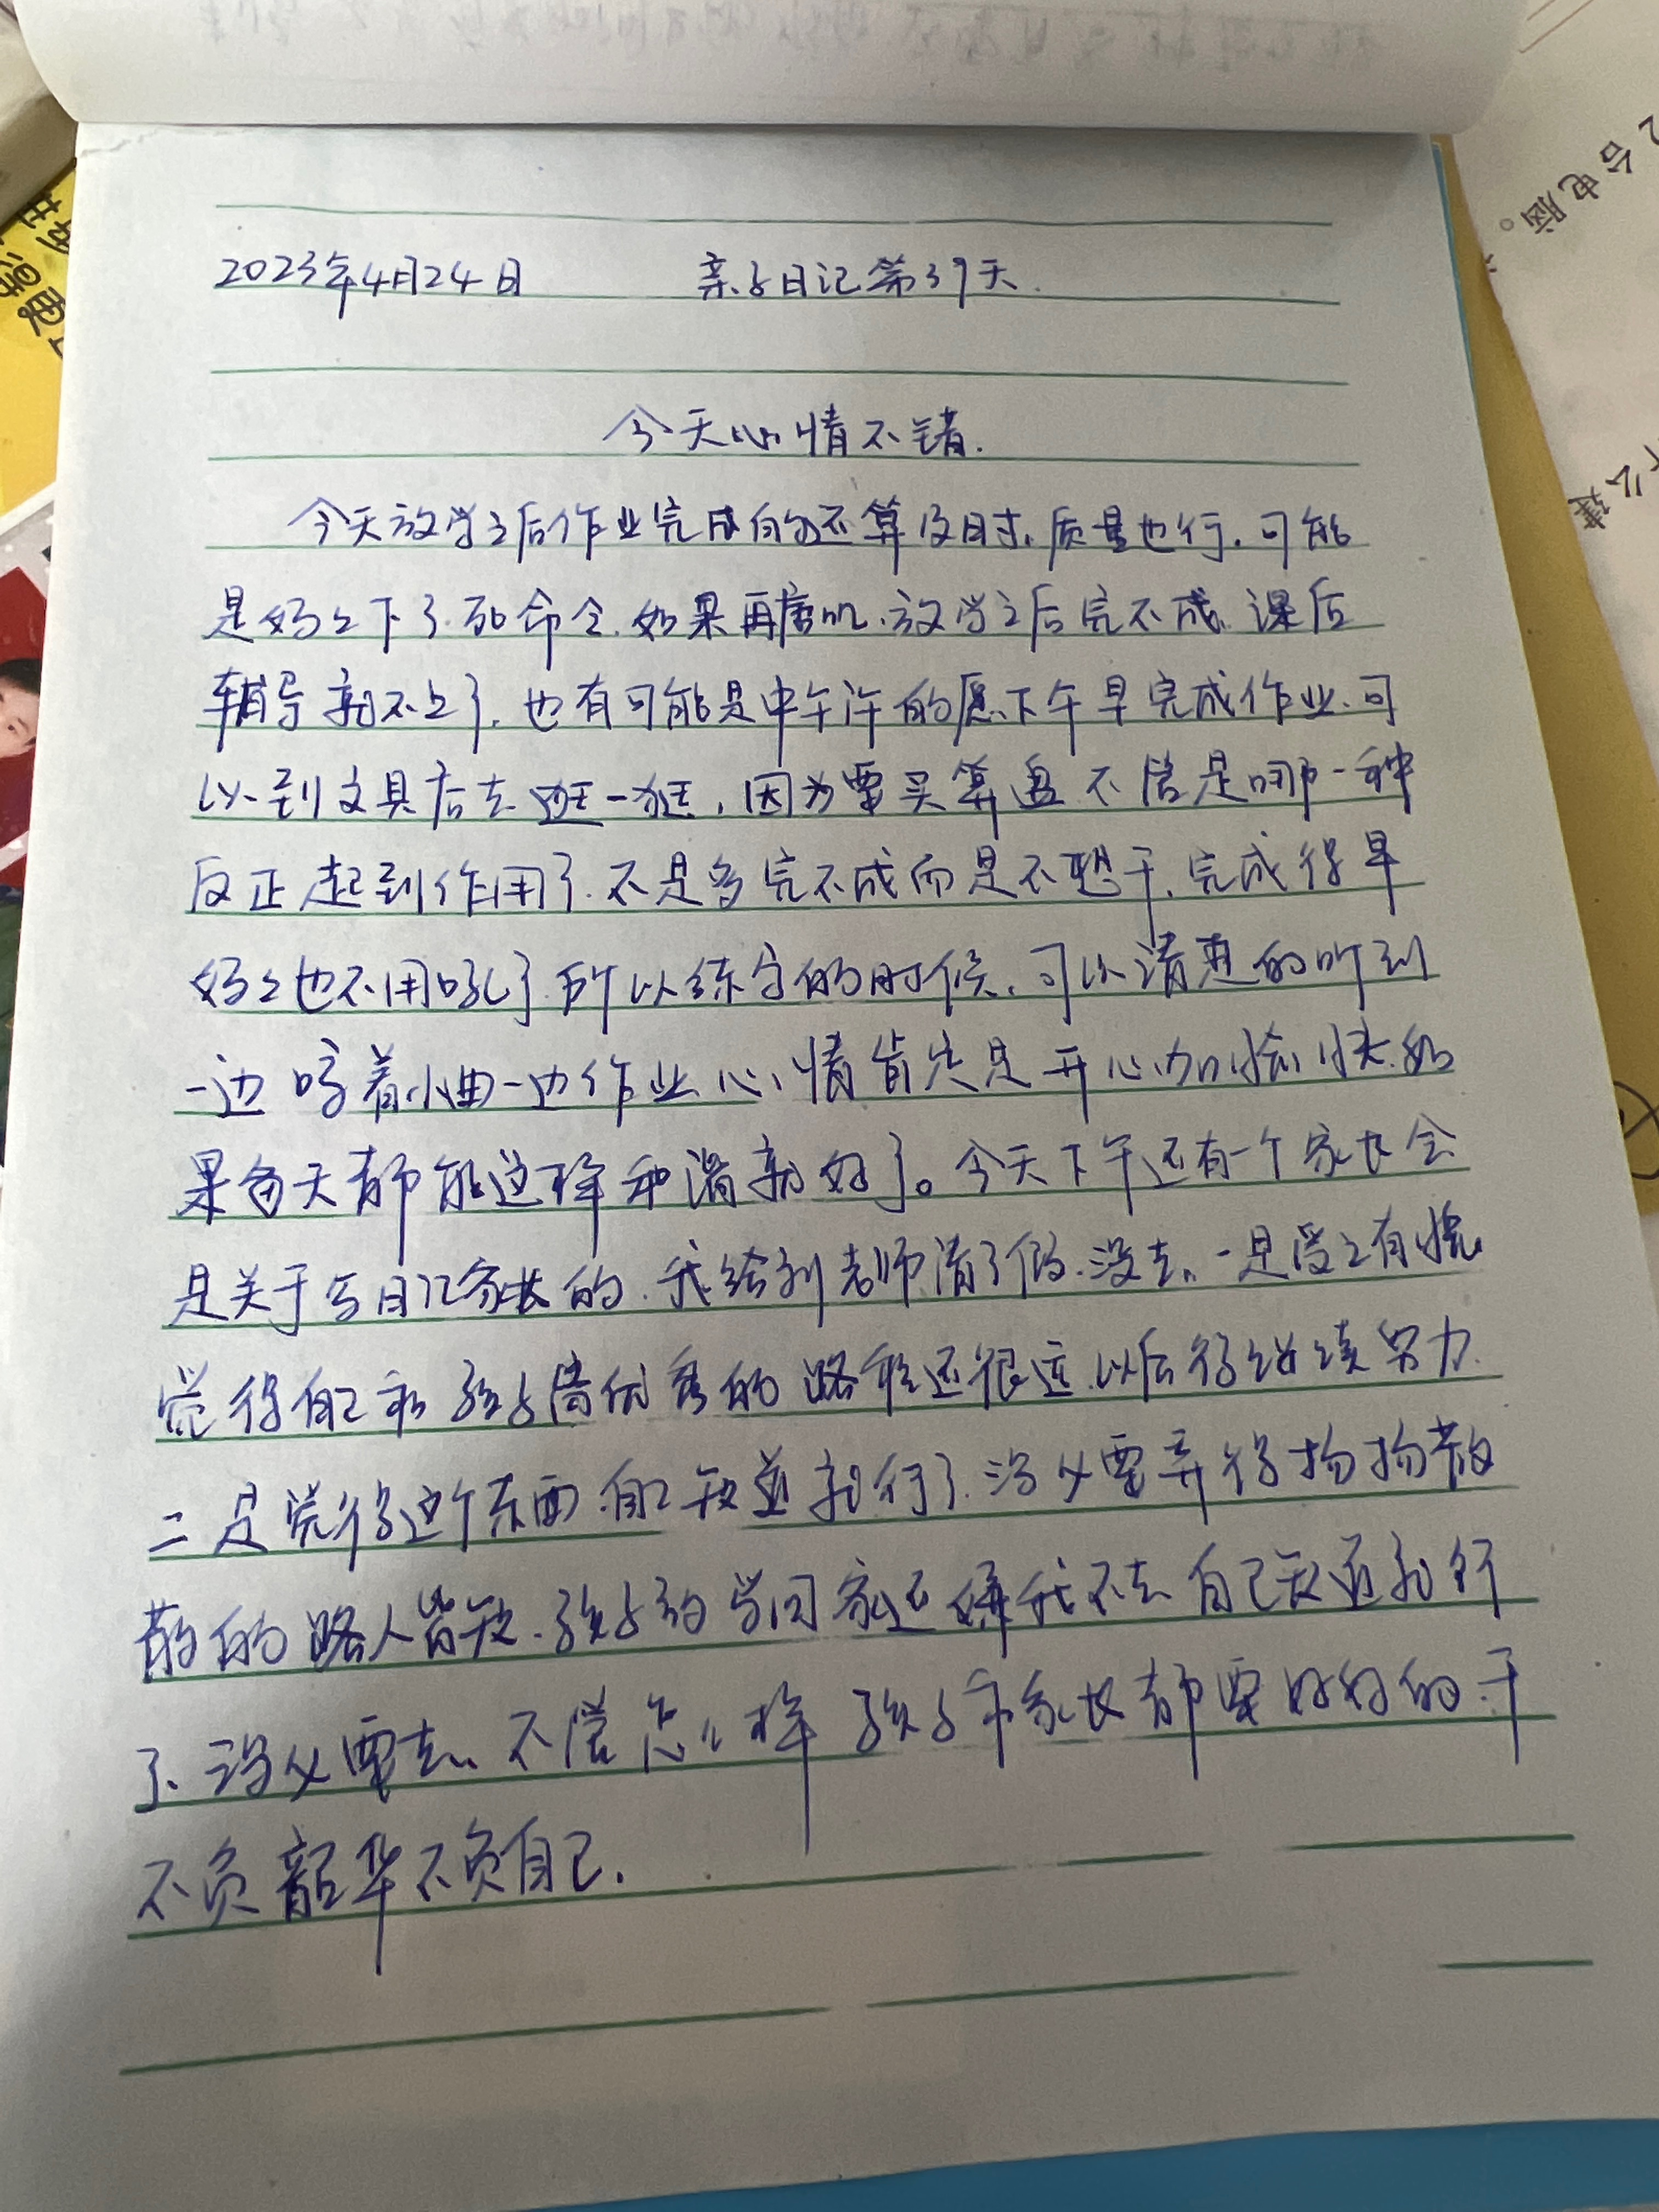 2023年4月24日 亲子日记第39天.
今天心情不错.
今天放学之后作业完成的还算及时.质量也行.可能
是妈妈下了死命令.如果再磨叽.放学之后完不成.课后
辅导就不上了.也有可能是中午许的愿.下午早完成作业.可
以到文具店去逛一逛,因为要买算盘.不管是哪一种
反正起到作用了.不是多完不成而是不想干.完成得早
妈妈也不用吼了.所以练字的时候.可以清楚的听到
一边哼着小曲一边作业.心情肯定是开心加愉快.如
果每天都能这样和谐就好了。今天下午还有一个家长会
是关于写日记家长的.我给刘老师请了假.没去.一是受之有愧
觉得自己和孩子离优秀的路程还很远.以后得继续努力.
二是觉得这个东西.自己知道就行了.没必要弄得扬扬散
散的路人皆知.孩子放学回家还嫌我不去.自己知道就行
了.没必要去.不管怎么样孩子和家长都要好好的干
不负韶华不负自己.
台电脑。